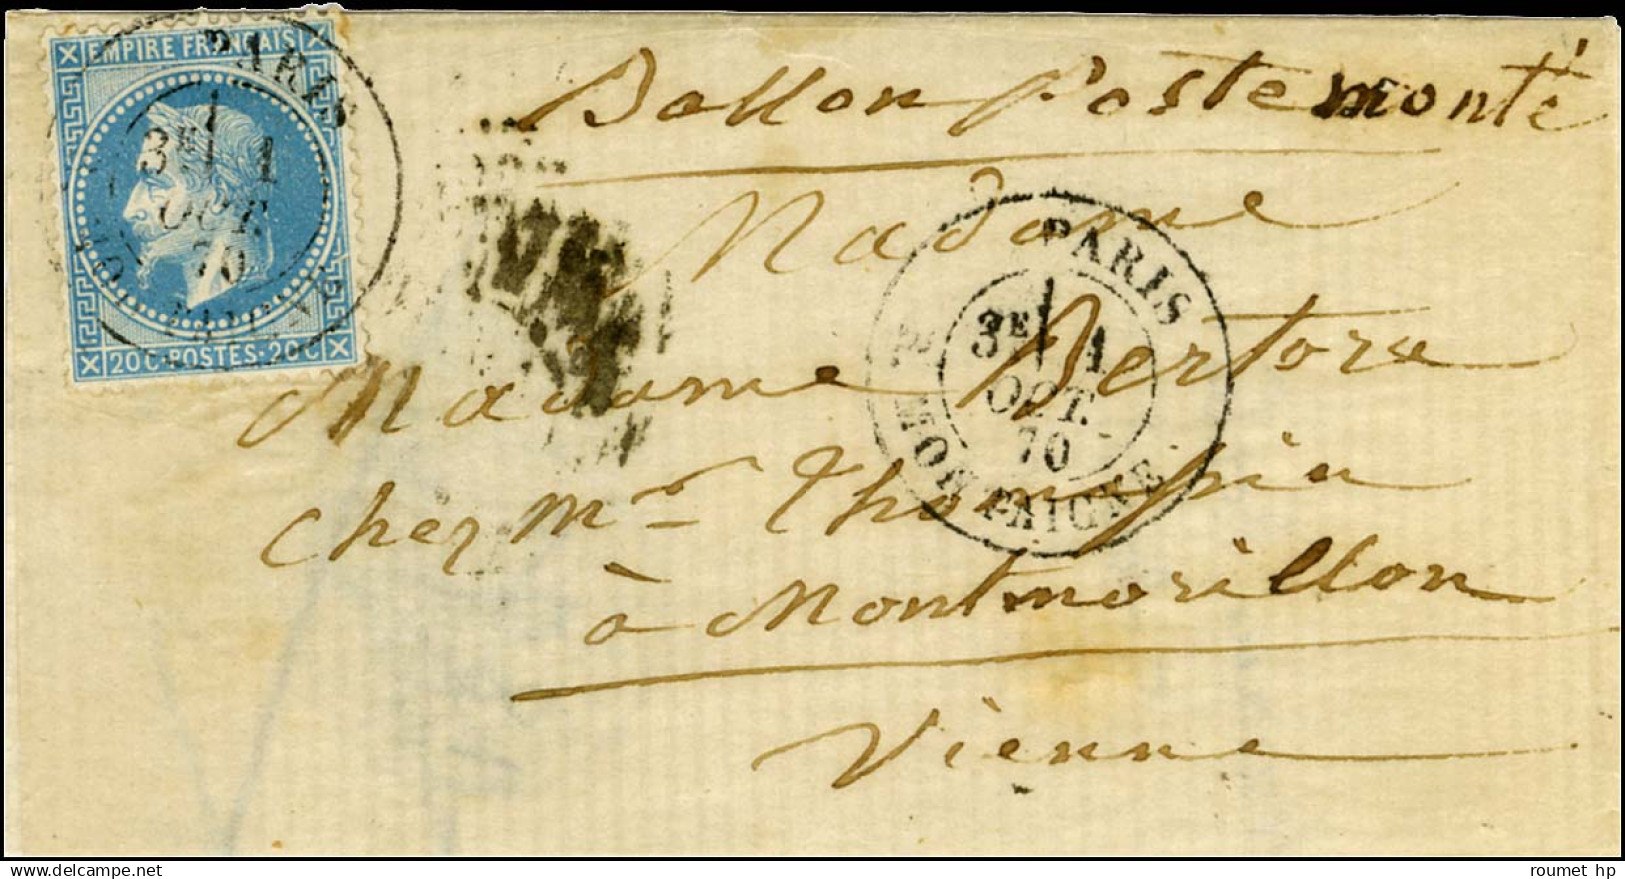 EMPIRE FRANÇAIS
20C·POSTES·20C
PARIS
3E 1
OCT.
70
Ballon Poste monté
Madame
PARIS
3E 1
OCT.
70
R. MONTAIGNE
Madame Bertore
chez Mr Thompin
à Montmorillon
Vienne
roumet hp